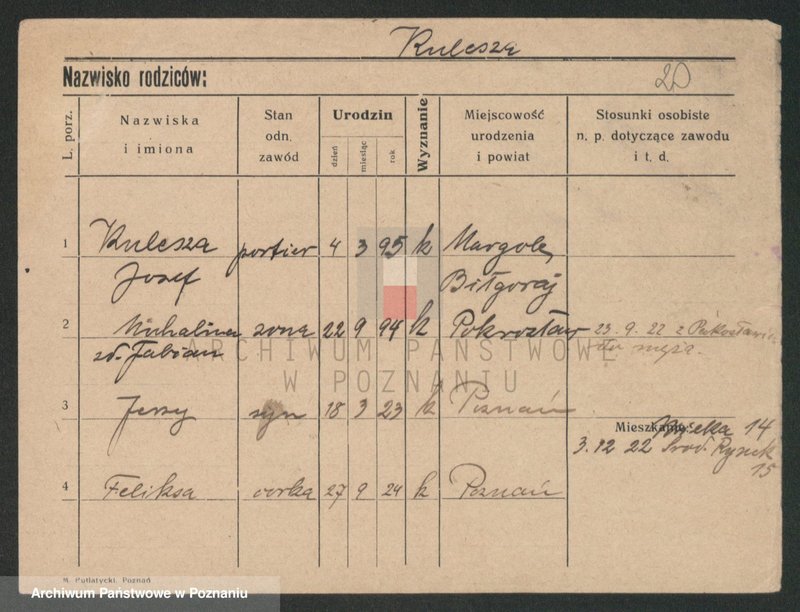 Kulesza
Nazwisko rodziców:
20
L. porz.
Nazwiska
i imiona
Stan
odn.
zawód
Urodzin
dzień
miesiąc
rok
Wyznanie
Miejscowość
urodzenia
i powiat
Stosunki osobiste
n. p. dotyczące zawodu
i t. d.
1 Kulesza portier 4 3 95 k Margole
Josef Biłgoraj
2 Michalina zona 22 9 94 k 23. 9. 22 z
zd. Fabian dla męża.
ARCHIWUM PAŃSTWOWE
W POZNANIU
3 Jerzy syn 18 3 23 k Poznań
Mieszkanie: 14
3. 12 22 Środ. Rynek
15
4 Feliksa corka 27 9 24 k Poznań
M. Putiatycki, Poznań
Archiwum Państwowe w Poznaniu